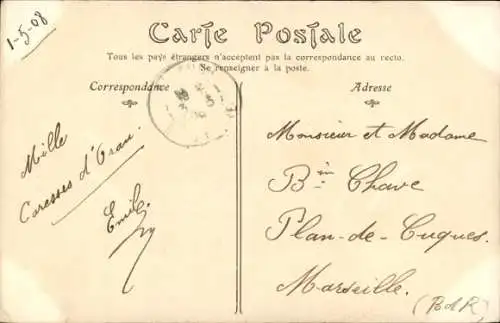 1-5-08
Carte Postale
Tous les pays étrangers n'acceptent pas la correspondance au recto.
Se renseigner à la poste.
Correspondance
Adresse
Mille
Caresses d'Oran.
Emile
Monsieur et Madame
Bin Chave
Plan-de-Cuques.
Marseille.
(BdR)